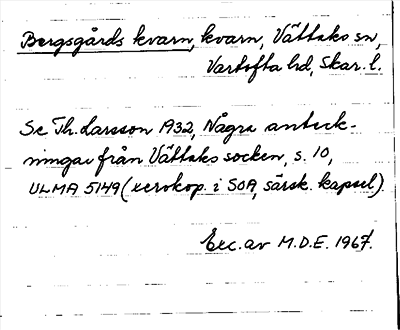 Bergsgårds kvarn, kvarn, Vättaks sn,
Vartofta hd, Skar. l.
Se Th. Larsson 1932, Några anteck-
ningar från Vättaks socken, s. 10,
ULMA 5149 (xerokop. i SOA, särsk. kapsel).
Exc. av M.D.E. 1967.